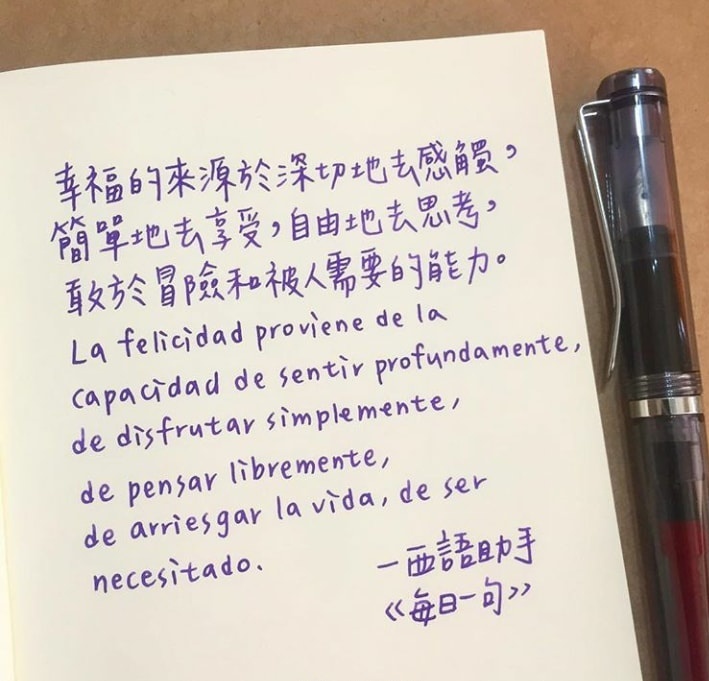 幸福的來源於深切地去感觸，
簡單地去享受，自由地去思考，
敢於冒險和被人需要的能力。
La felicidad proviene de la
capacidad de sentir profundamente,
de disfrutar simplemente,
de pensar libremente,
de arriesgar la vida, de ser
necesitado.
—西語助手
《每日一句》